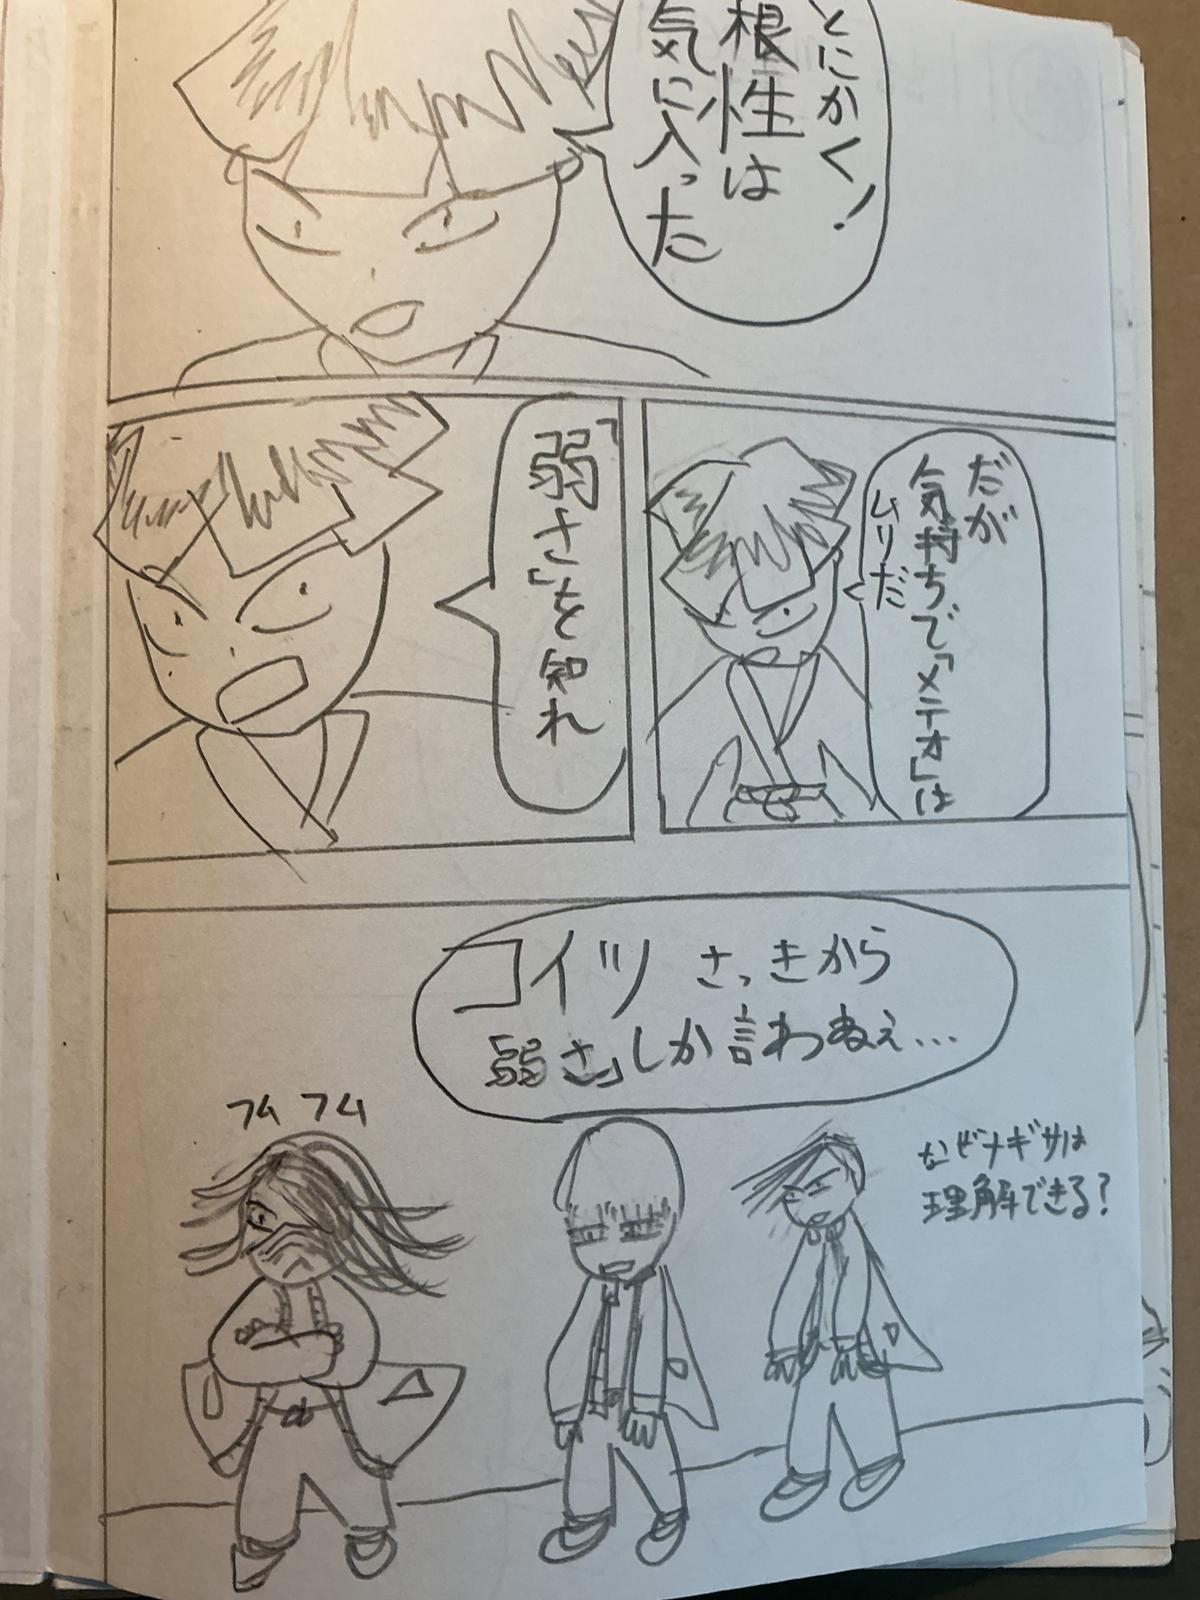 とにかく!
根性は
気に入った
だが
気持ちで「メテオ」は
ムリだ
「弱さ」を知れ
コイツ さっきから
「弱さ」しか言わねぇ...
フム フム
なぜナギサは
理解できる?